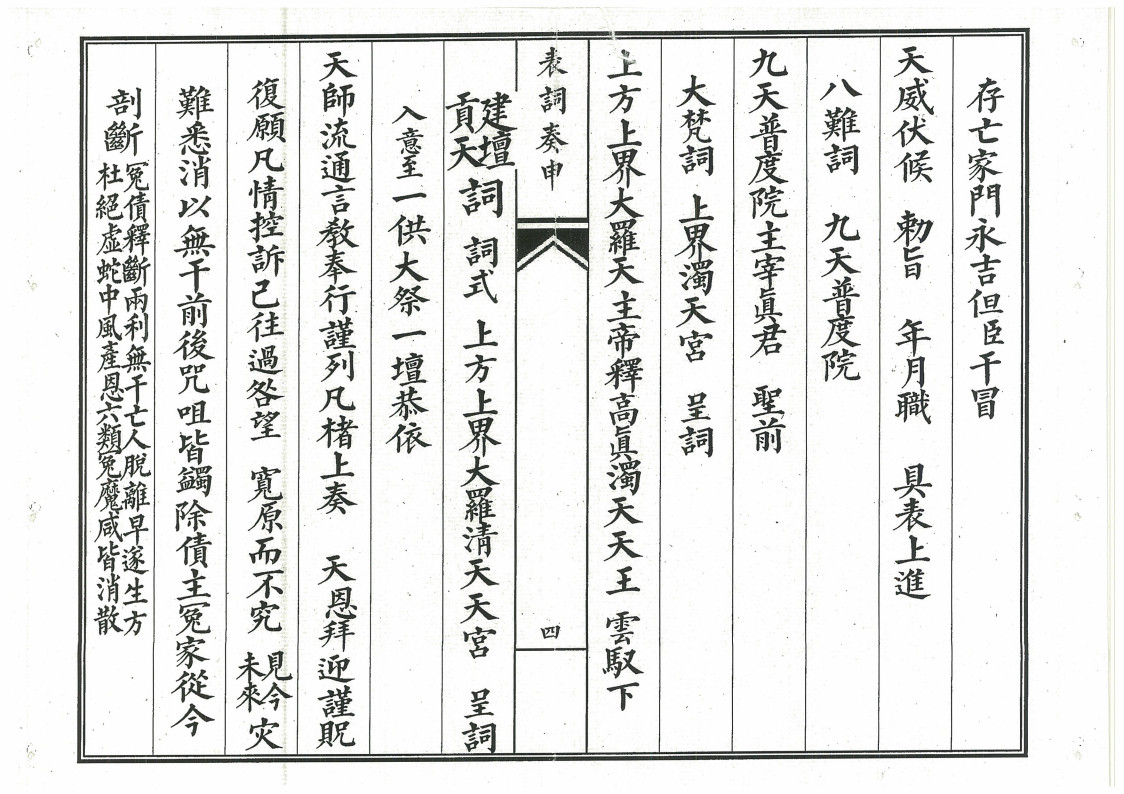 存亡家門永吉但臣干冒
天威伏候　勅旨　年月職　具表上進
八難詞　九天普度院
九天普度院主宰眞君　聖前
大梵詞　上界濁天宮　呈詞
上方上界大羅天主帝釋高眞濁天天王　雲馭下
表詞奏申　四
建壇貢天詞　詞式　上方上界大羅清天天宮　呈詞
入意至一供大祭一壇恭依
天師流通言教奉行謹列凡楮上奏　天恩拜迎謹貺
復願凡情控訴已往過咎望　寬原而不究　見今未來災
難悉消以無干前後咒咀皆蠲除債主冤家從今
剖斷　冤債釋斷兩利無干亡人脫離早遂生方
杜絕虛蛇中風產恩六類冤魔咸皆消散